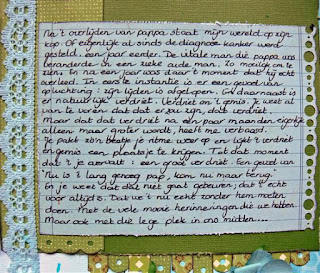 Na 't overlijden van pappa staat mijn wereld op zijn
kop. Of eigenlijk al sinds de diagnose kanker werd
gesteld, een jaar eerder. De vitale man die pappa was
veranderde in een zieke oude man. Zo moeilijk om te
zien. En na een jaar was daar 't moment dat hij echt
overleed. In eerste instantie is er een gevoel van
opluchting: zijn lijden is afgelopen. En daarnaast is
er natuurlijk verdriet. Verdriet om 't gemis. Je weet al
van te voren dat dat er zou zijn, dat verdriet.
Maar dat dat verdriet na een paar maanden eigenlijk
alleen maar groter wordt, heeft me verbaasd.
Je pakt zo'n beetje je ritme weer op en lijkt 't verdriet
en gemis een plaatsje te krijgen. Tot dat moment
dat 't je aanvalt: een groot verdriet. Een gevoel van
Nu is 't lang genoeg pap, kom nu maar terug.
En je weet dat dat niet gaat gebeuren, dat 't echt
voor altijd is. Dat we 't nu echt zonder hem moeten
doen. Met de vele mooie herinneringen die we hebben.
Maar ook met die lege plek in ons midden....